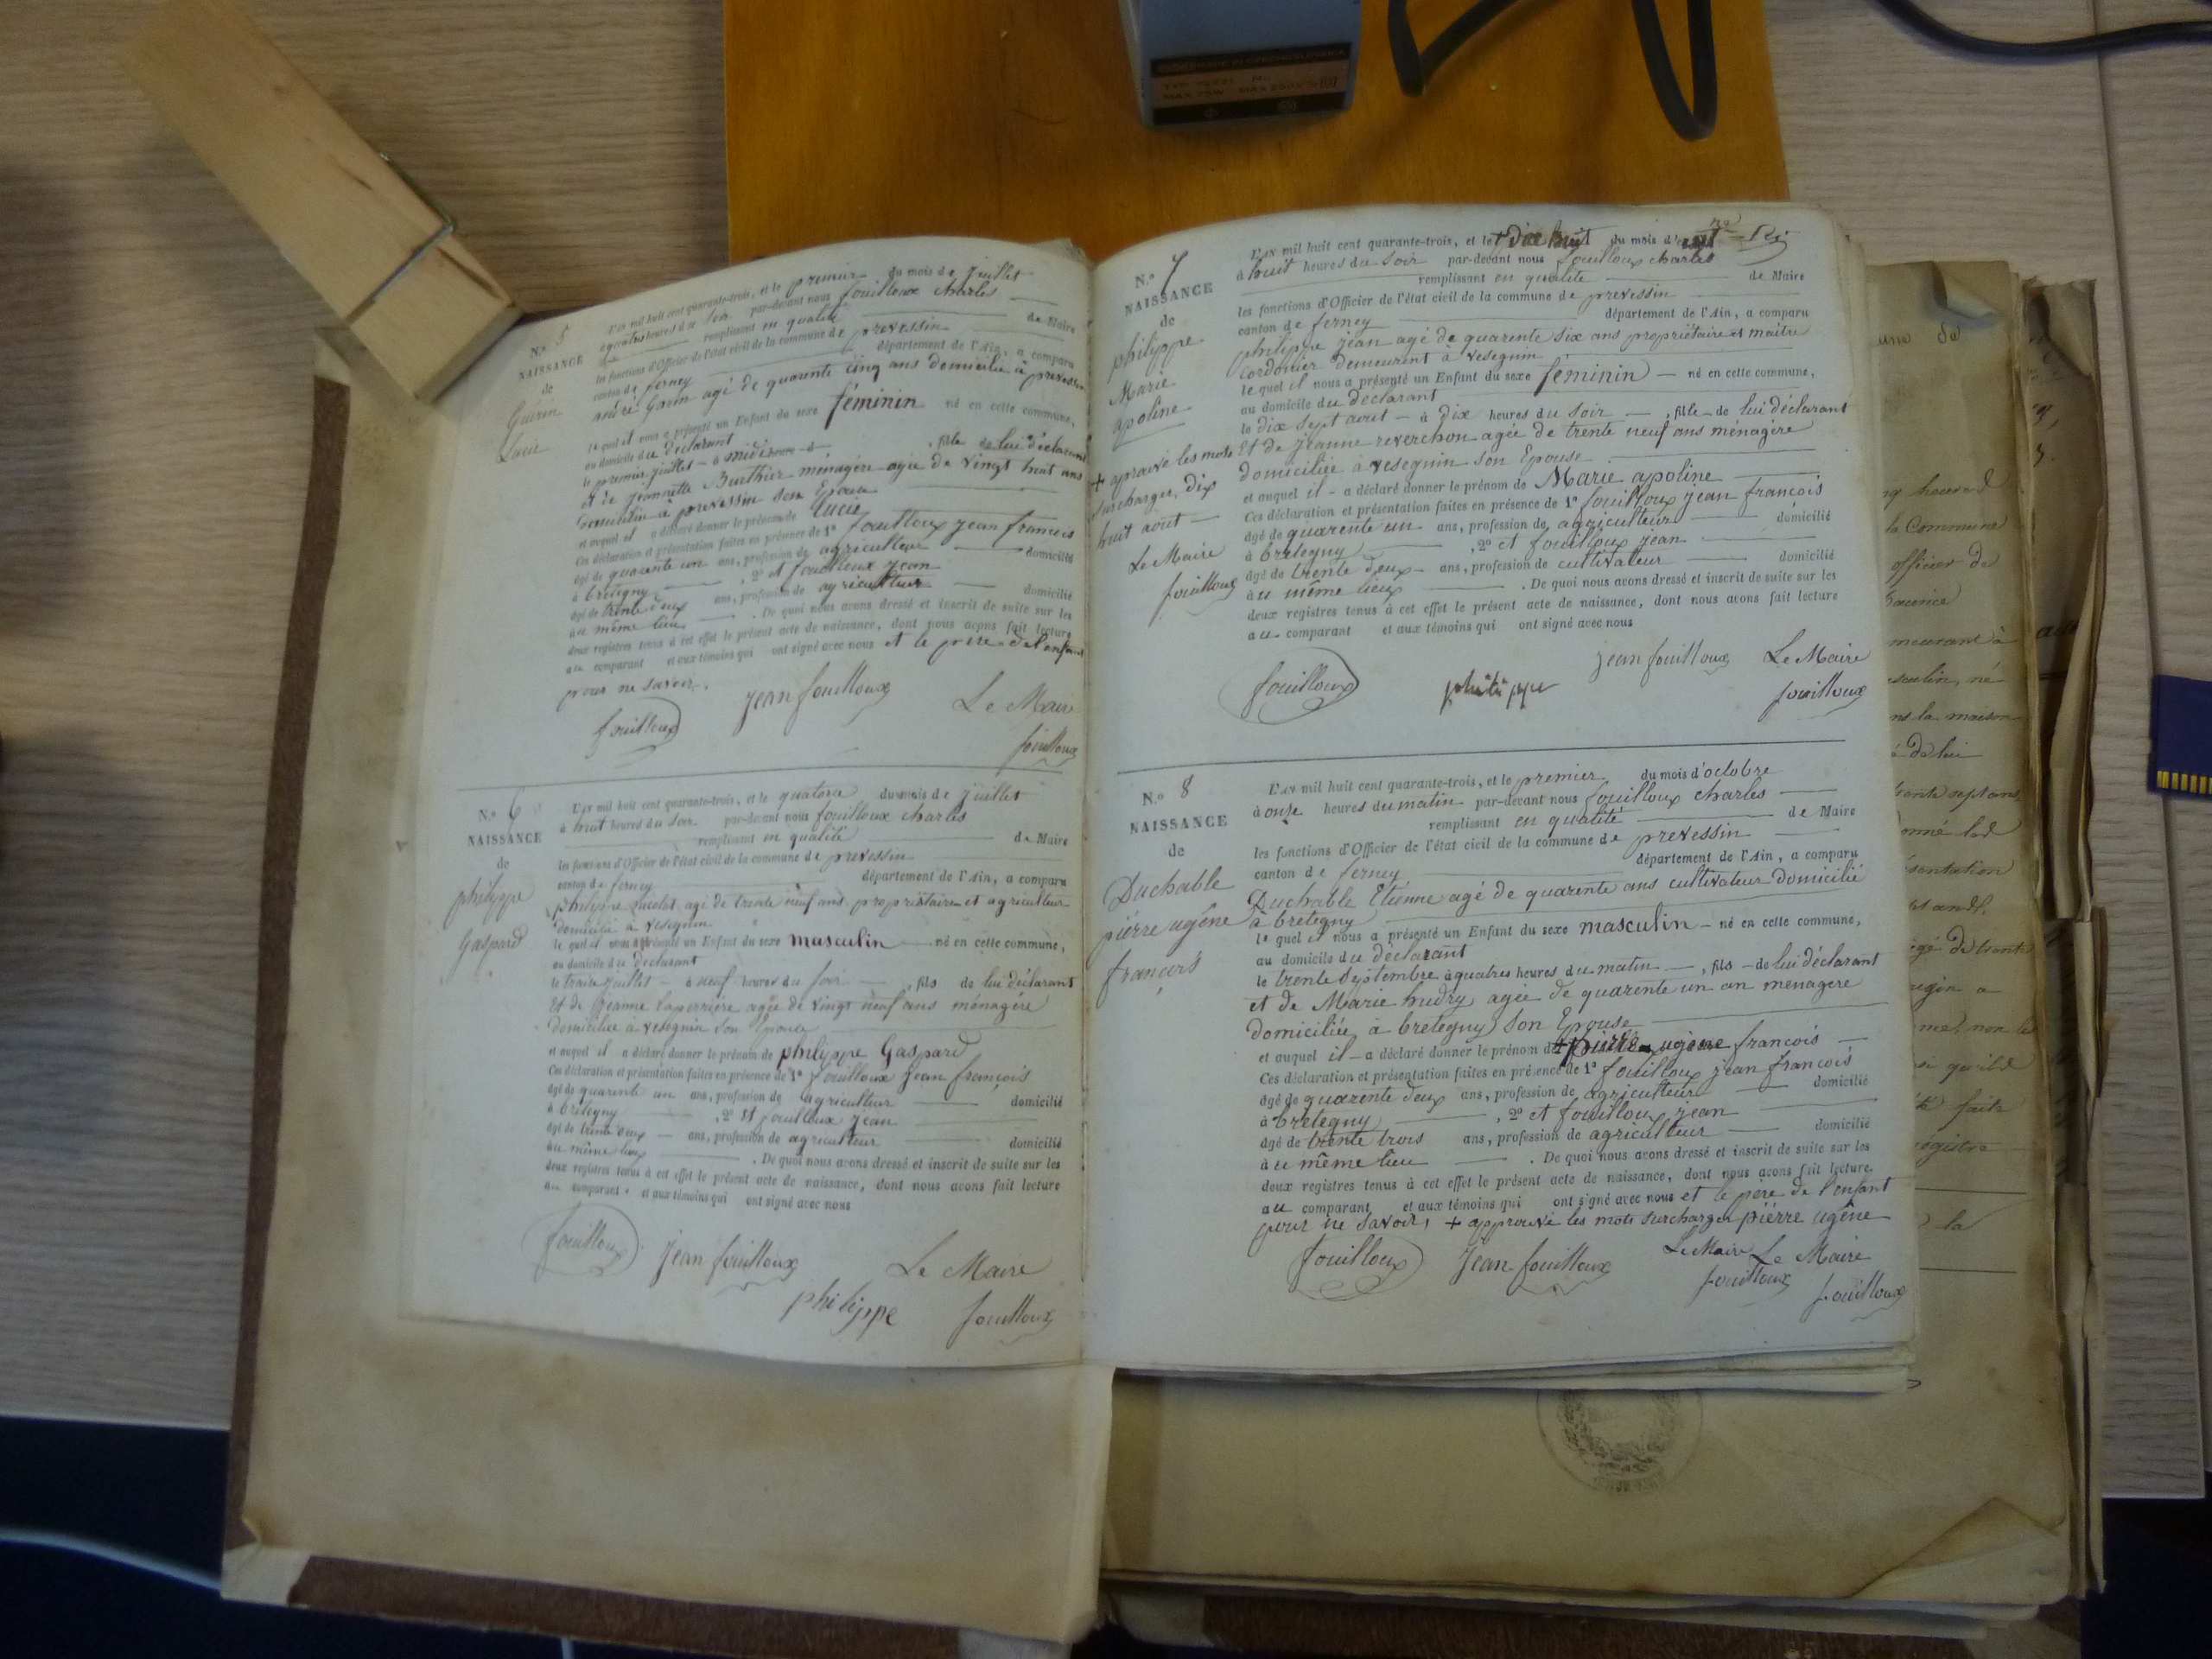 N.º 5
NAISSANCE
de
Guérin
Lucie
L'an mil huit cent quarante-trois, et le premier du mois de juillet
à quatres heures du soir par-devant nous fouilloux charles
remplissant en qualité de Maire
les fonctions d'Officier de l'état civil de la commune de prevessin
canton de ferney département de l'Ain, a comparu
agé de quarante cinq ans domicilié à prevessin
le quel il nous a présenté un Enfant du sexe féminin né en cette commune,
au domicile du déclarant
le premier juillet à midi heure , fille de lui déclarant
et de jeannette Burthier ménagère agée de vingt huit ans
domicilié à prevessin son Epouse
et auquel il a déclaré donner le prénom de Lucie
Ces déclaration et présentation faites en présence de 1º fouilloux jean françois
agé de quarante un ans, profession de agriculteur domicilié
à bretigny , 2º et fouilloux jean
agé de trente deux ans, profession de agriculteur domicilié
au même lieu . De quoi nous avons dressé et inscrit de suite sur les
deux registres tenus à cet effet le présent acte de naissance, dont nous avons fait lecture
au comparant et aux témoins qui ont signé avec nous et le père de l'enfant
pour ne savoir.
fouilloux jean fouilloux Le Maire
fouilloux
N.º 6
NAISSANCE
de
philippe
Gaspard
L'an mil huit cent quarante-trois, et le quatorze du mois de juillet
à huit heures du soir par-devant nous fouilloux charles
remplissant en qualité de Maire
les fonctions d'Officier de l'état civil de la commune de prevessin
canton de ferney département de l'Ain, a comparu
philippe agé de trente neuf ans propriétaire et agriculteur
domicilié à vesegnin
le quel il nous a présenté un Enfant du sexe masculin né en cette commune,
au domicile du déclarant
le treize juillet à neuf heures du soir , fils de lui déclarant
Et de jeanne laperriere agée de vingt neuf ans ménagère
domiciliée à vesegnin son Epouse
et auquel il a déclaré donner le prénom de philippe Gaspard
Ces déclaration et présentation faites en présence de 1º fouilloux jean françois
agé de quarente un ans, profession de agriculteur domicilié
à bretegny , 2º Et fouilloux jean
agé de trente deux ans, profession de agriculteur domicilié
au même lieux . De quoi nous avons dressé et inscrit de suite sur les
deux registres tenus à cet effet le présent acte de naissance, dont nous avons fait lecture
au comparant et aux témoins qui ont signé avec nous
fouilloux jean fouilloux Le Maire
philippe fouilloux
N.º 7
NAISSANCE
de
philippe
Marie
apoline
+ aprouvé les mots
surcharger, dix
huit août
Le Maire
fouilloux
L'an mil huit cent quarante-trois, et le + dix huit du mois d'août
à huit heures du soir par-devant nous fouilloux charles
remplissant en qualité de Maire
les fonctions d'Officier de l'état civil de la commune de prevessin
canton de ferney département de l'Ain, a comparu
philippe jean agé de quarente six ans propriétaire et maitre
cordonier demeurent à vesegnin
le quel il nous a présenté un Enfant du sexe féminin né en cette commune,
au domicile du déclarant
le dix sept aout à dix heures du soir , fille de lui déclarant
Et de jeanne reverchon agée de trente neuf ans ménagère
domiciliée à vesegnin son Epouse
et auquel il a déclaré donner le prénom de Marie apoline
Ces déclaration et présentation faites en présence de 1º fouilloux jean françois
agé de quarente un ans, profession de agriculteur domicilié
à bretegny , 2º et fouilloux jean
agé de trente deux ans, profession de cultivateur domicilié
au même lieux . De quoi nous avons dressé et inscrit de suite sur les
deux registres tenus à cet effet le présent acte de naissance, dont nous avons fait lecture
au comparant et aux témoins qui ont signé avec nous
jean fouilloux Le Maire
fouilloux philippe fouilloux
N.º 8
NAISSANCE
de
Duchable
piérre ugêne
françois
L'an mil huit cent quarante-trois, et le premier du mois d'octobre
à onze heures du matin par-devant nous fouilloux charles
remplissant en qualité de Maire
les fonctions d'Officier de l'état civil de la commune de prevessin
canton de ferney département de l'Ain, a comparu
Duchable Etienne agé de quarente ans cultivateur domicilié
à bretegny
le quel il nous a présenté un Enfant du sexe masculin né en cette commune,
au domicile du déclarant
le trente septembre à quatres heures du matin , fils de lui déclarant
et de Marie hudry agée de quarente un an menagere
domiciliée à bretegny son Epouse
et auquel il a déclaré donner le prénom de + piérre ugêne françois
Ces déclaration et présentation faites en présence de 1º fouilloux jean françois
agé de quarente deux ans, profession de agriculteur domicilié
à bretegny , 2º et fouilloux jean
agé de trente trois ans, profession de agriculteur domicilié
au même lieu . De quoi nous avons dressé et inscrit de suite sur les
deux registres tenus à cet effet le présent acte de naissance, dont nous avons fait lecture
au comparant et aux témoins qui ont signé avec nous et le père de l'enfant
pour ne savoir, + approuvé les mots surcharger piérre ugêne
fouilloux jean fouilloux Le Maire Le Maire
fouilloux fouilloux
la Commune
officier de
meurant à
masculin, né
ns la maison
de lui
trente sept ans